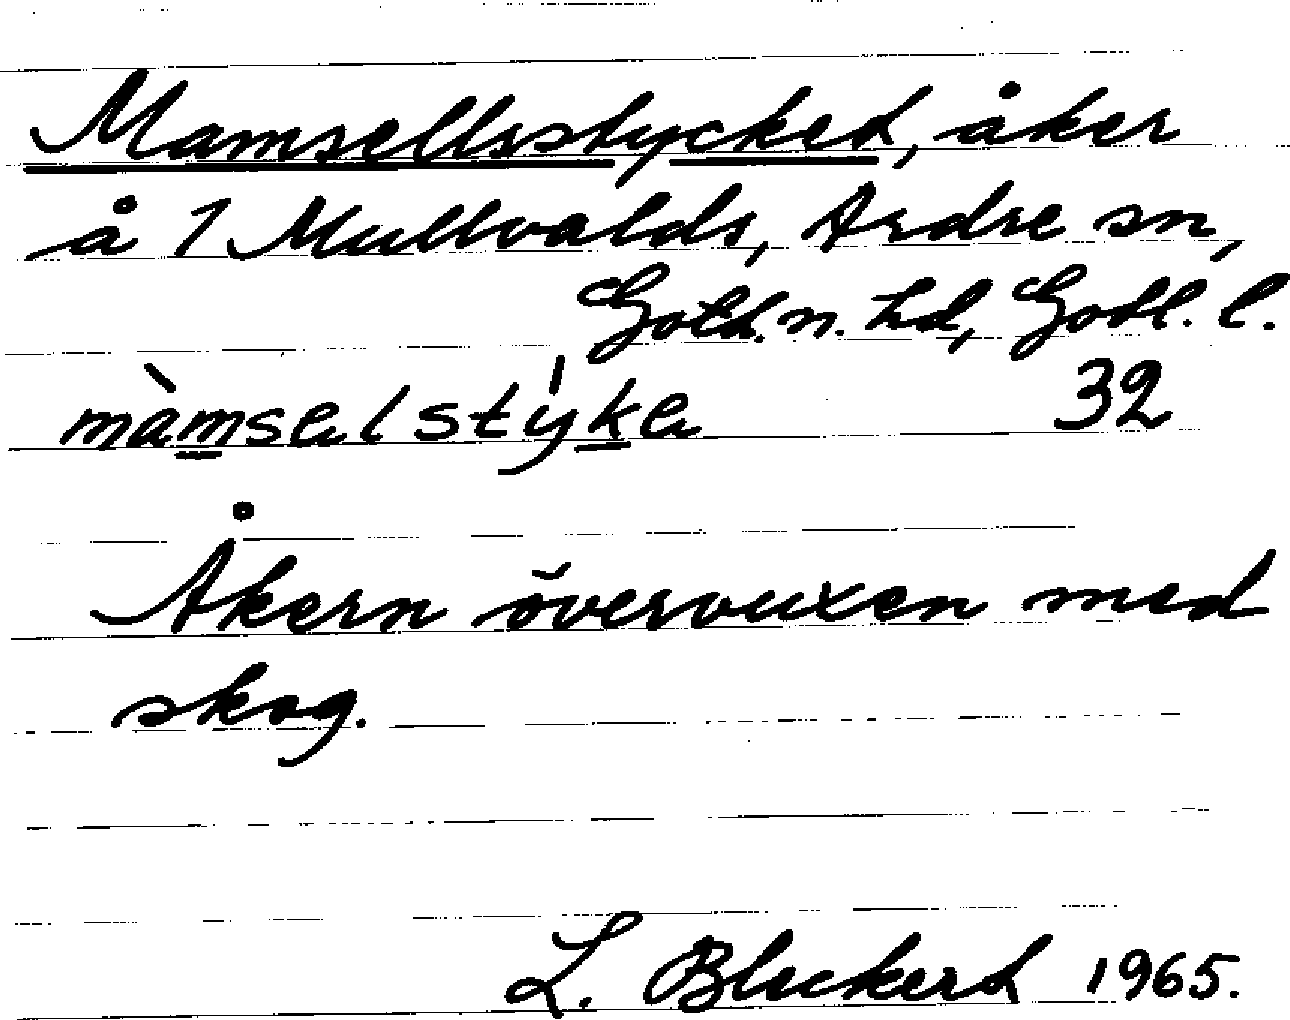 Mamsellsstycket, åker
å 1 Mullvalds, Ardre sn,
Goth.n. hd, Gotl. l.
màmsælstýkæ 32
Åkern övervuxen med
skog.
L. Bleckert 1965.